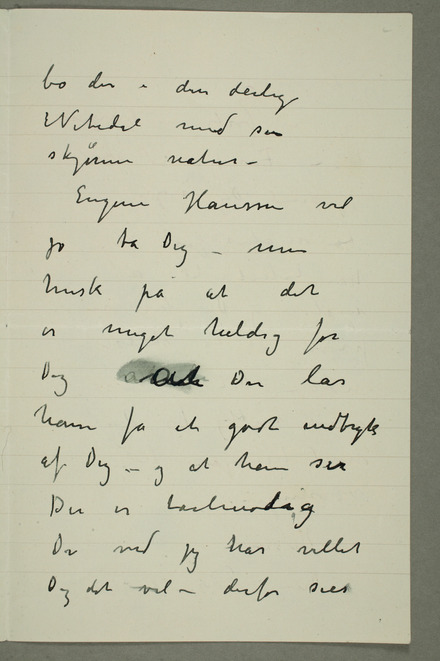 bo der i den deilig
skjønne natur –
Eugene Hanssen vil
jo ta Dig – men
husk på at det
er meget heldig for
Dig at Du lar
ham få et godt indtryk
af Dig – og at han ser
Du er taalmodig
Du ved jeg har villet
Dig det vel – derfor